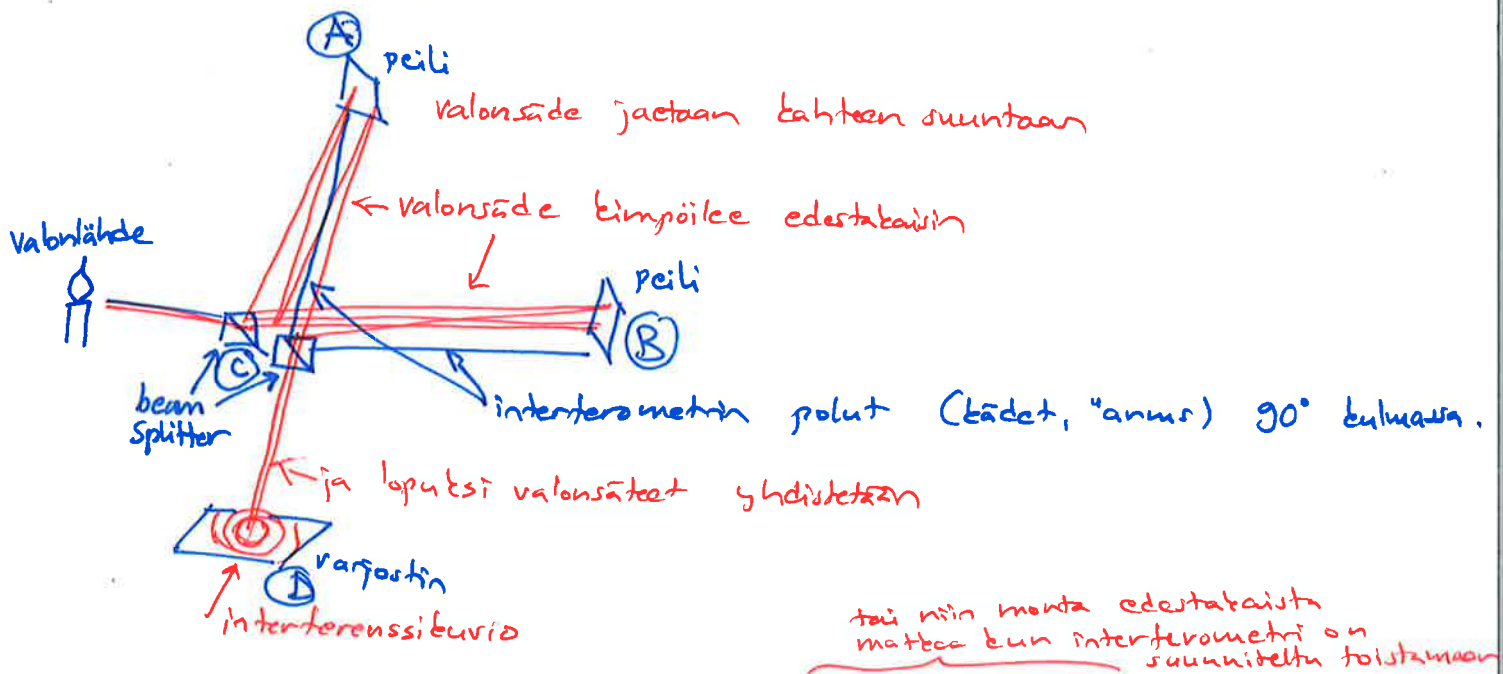 A
peili
valonsäde jaetaan kahteen suuntaan
← valonsäde kimpoilee edestakaisin
valonlähde
peili
B
C
beam
splitter
interferometrin polut (kädet, "arms) 90° kulmassa.
ja lopuksi valonsäteet yhdistetään
varjostin
D
interferenssikuvio
tai niin monta edestakaista
matkaa kun interferometri on
suunniteltu toistamaan